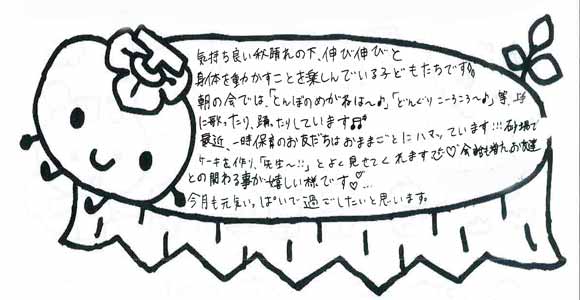 気持ち良い秋晴れの下、伸び伸びと
身体を動かすことを楽しんでいる子どもたちです
朝の会では、「とんぼのめがねは〜♪」「どんぐりころころ〜♪」等、上手
に歌ったり、踊ったりしています♬
最近、一時保育のお友だちはおままごとにハマっています!!!砂場で
ケーキを作り、「先生〜!!」とよく見せてくれます♡ 会話も増えお友達
との関わる事が嬉しい様です♡…
今月も元気いっぱいで過ごしたいと思います。